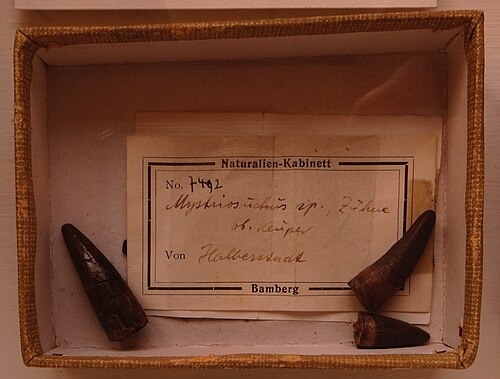 Naturalien-Kabinett
No. 7492
Mystriosuchus sp., Zähne
ob. Keuper
Von Halberstadt
Bamberg